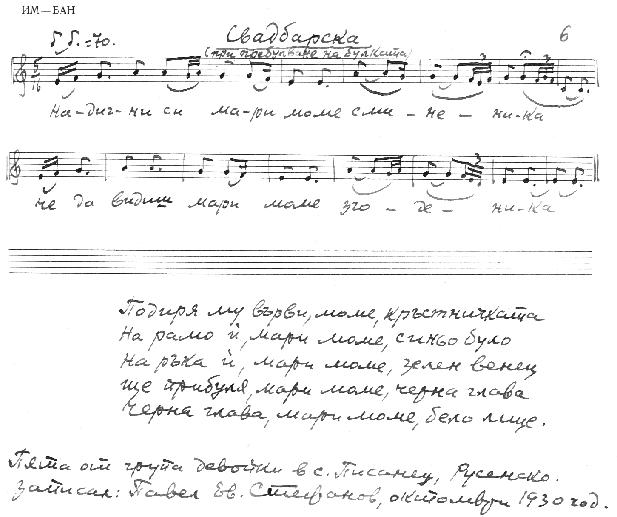 ИМ—БАН
♪ ♪.=70.
Свадбарска
6
(при пребулване на булката)
5
16
3
3
На-диг-ни си ма-ри моме сми-не-ни-ка
3
че да видиш мари моме зго-де-ни-ка
Подиря му върви, моме, кръстничката
На рамо ѝ, мари моме, синьо було
На ръка ѝ, мари моме, зелен венец
ще прибуля, мари моме, черна глава
Черна глава, мари моме, бело лице.
Пята от група девойки в с. Писанец, Русенско.
Записал: Павел Ев. Стефанов, октомври 1930 год.